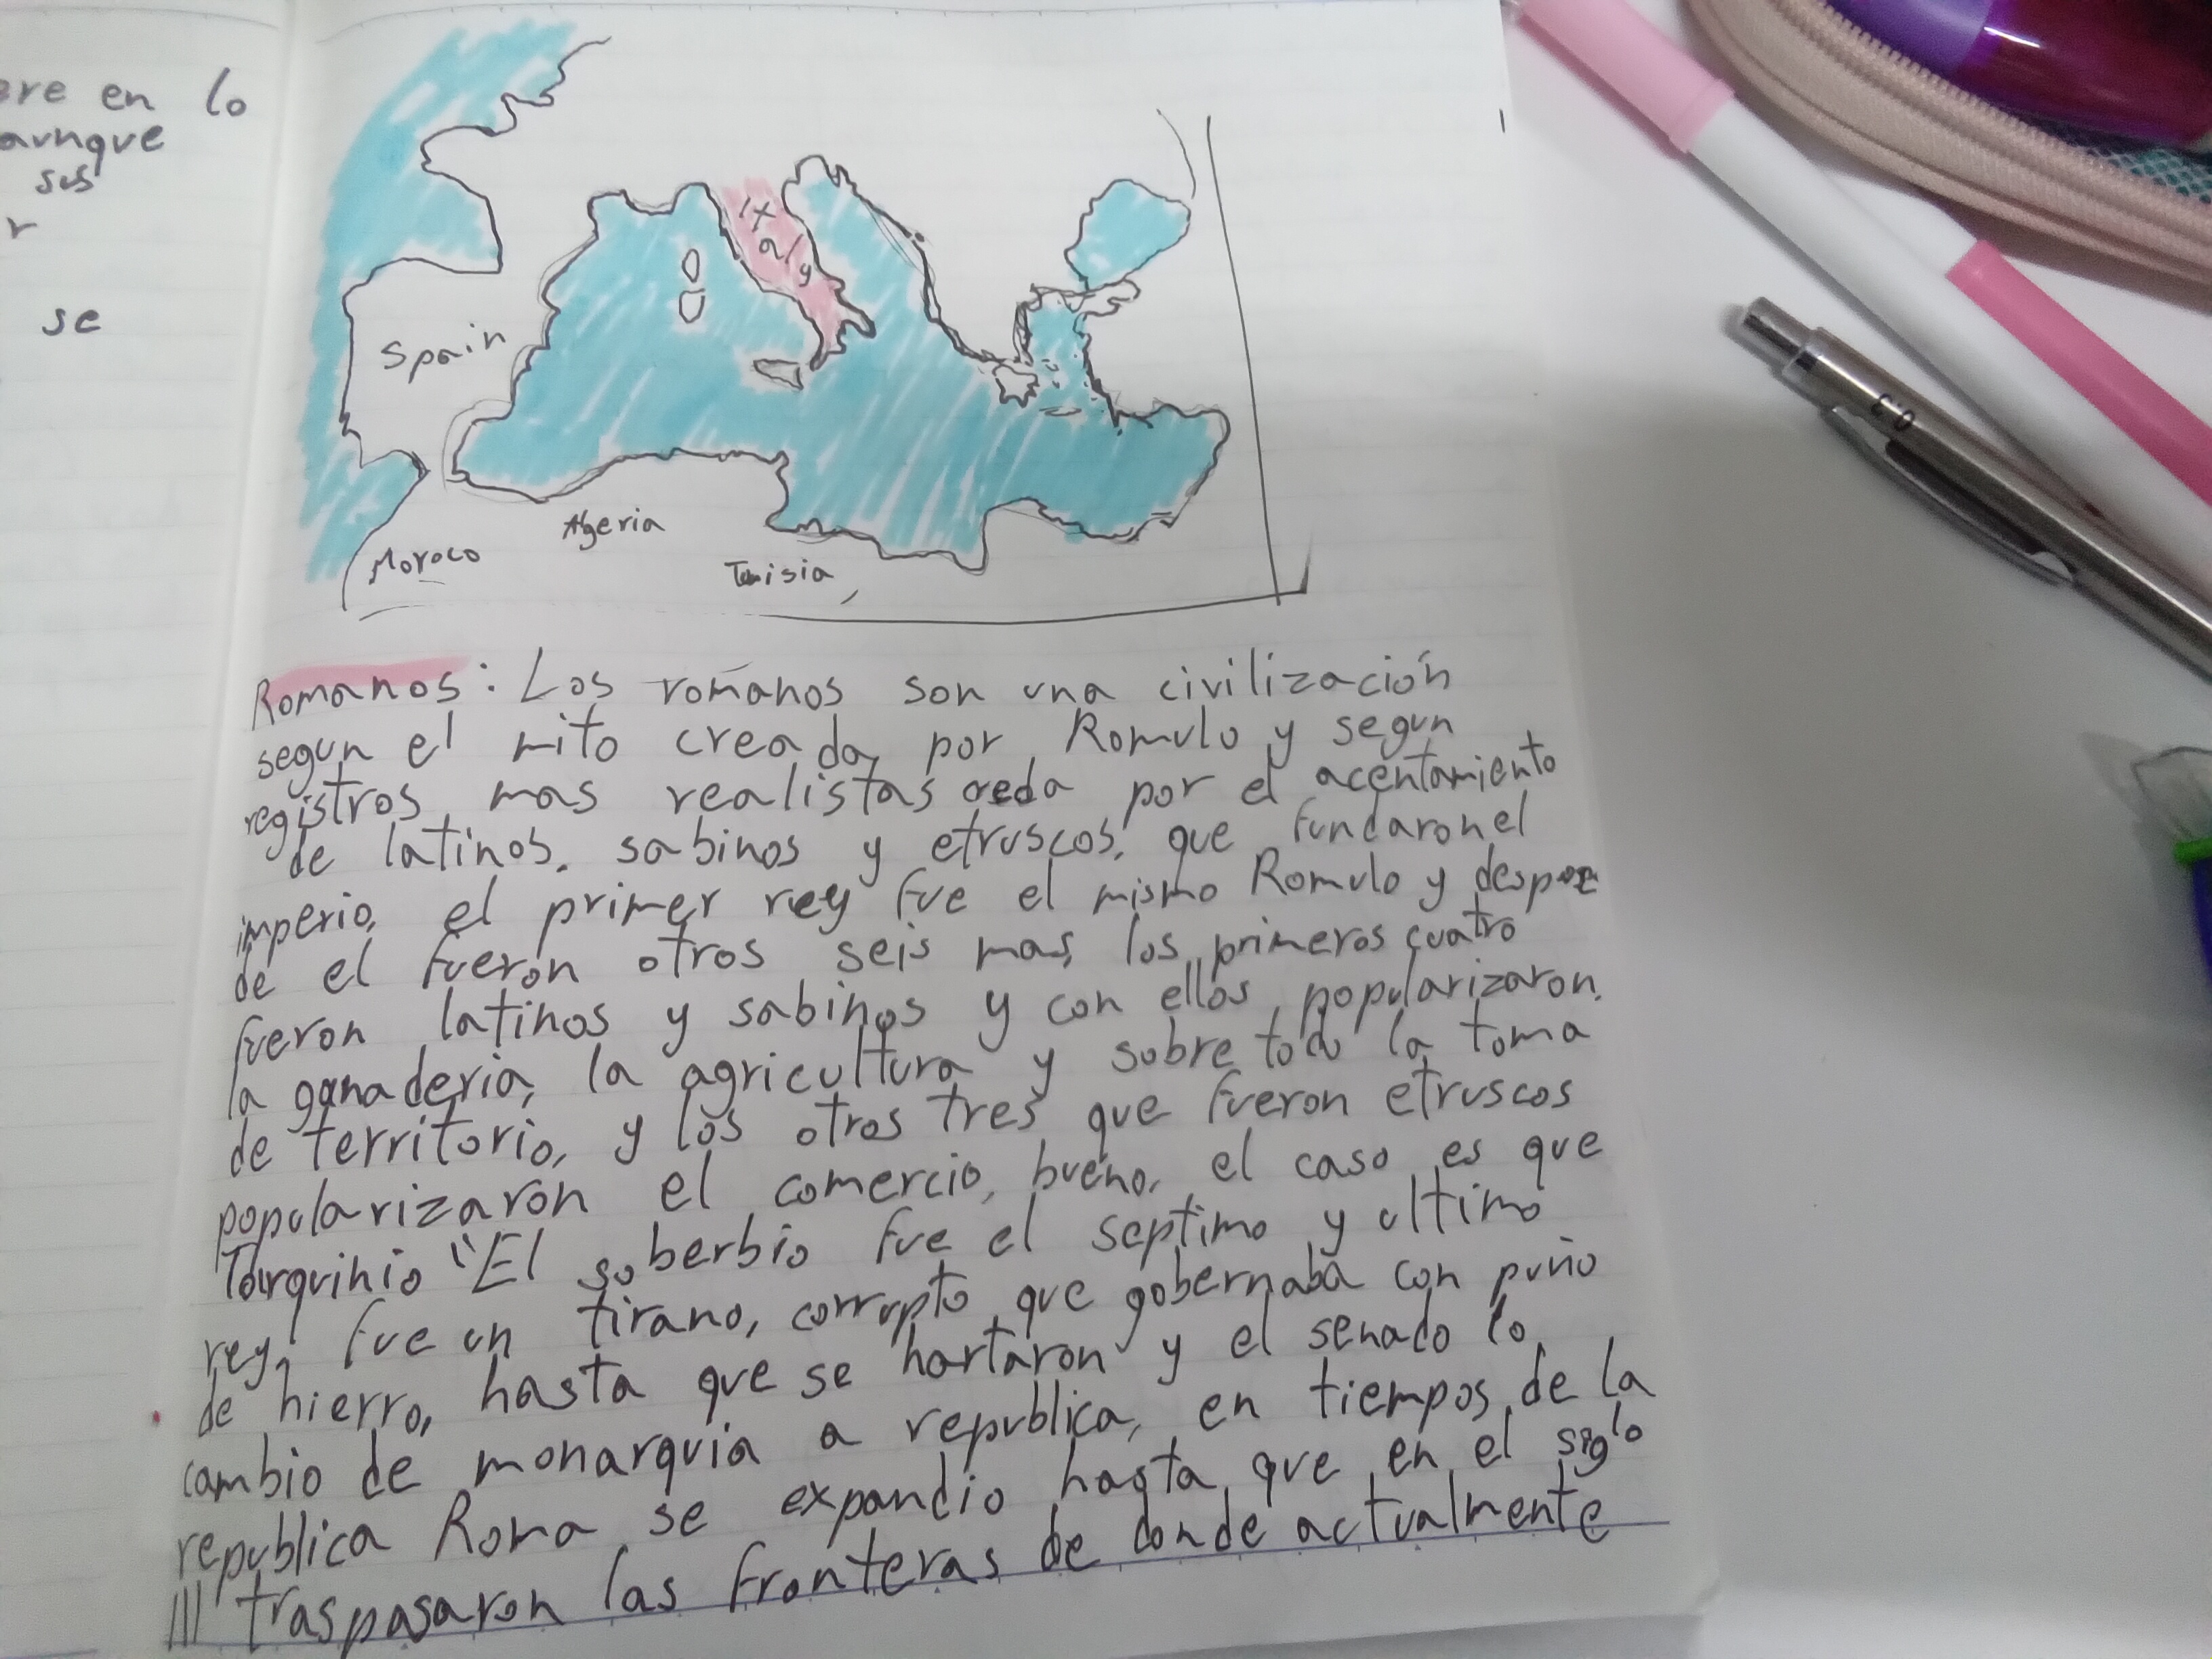 ore en lo
aunque
sus
r
se
Italy
Spain
Algeria
Moroco
Tunisia,
Romanos: Los romanos son una civilización
segun el mito creada por Romulo y segun
registros mas realistas por el acentamiento
de latinos, sabinos y etruscos, que fundaron el
imperio, el primer rey fue el mismo Romulo y
de el fueron otros seis mas, los primeros cuatro
fueron latinos y sabinos y con ellos popularizaron
la ganaderia, la agricultura y sobre todo la toma
de territorio, y los otros tres que fueron etruscos
popularizaron el comercio, bueno, el caso es que
Tarquinio "El soberbio fue el septimo y ultimo
rey, fue un tirano, corrupto que gobernaba con puño
de hierro, hasta que se hartaron y el senado lo
cambio de monarquia a republica, en tiempos de la
republica Roma se expandio hasta que en el siglo
III traspasaron las fronteras de donde actualmente
0.3